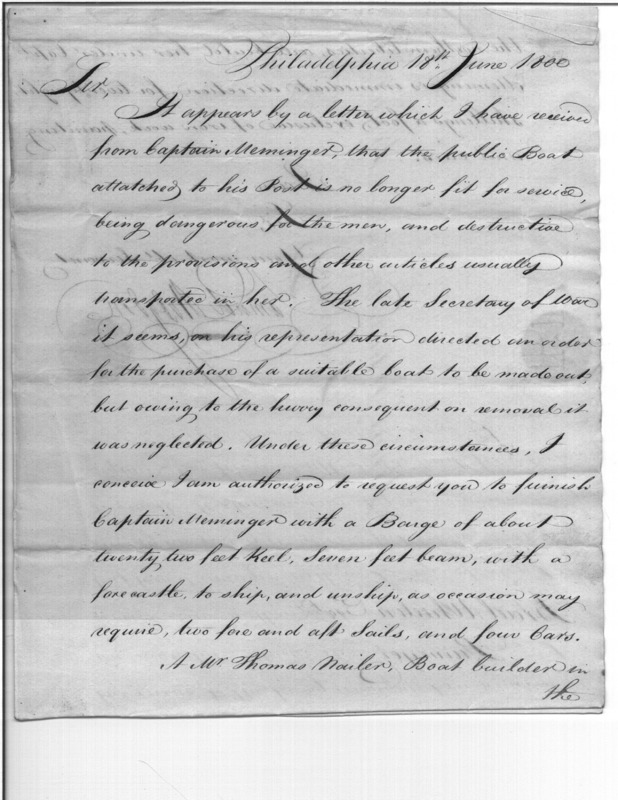 Philadelphia 18th June 1800
Sir,
It appears by a letter which I have received
from Captain Meminger, that the public Boat
attatched to his Post is no longer fit for service,
being dangerous for the men, and destructive
to the provisions and other articles usually
transported in her. The late Secretary of War
it seems, on his representation directed an order
for the purchase of a suitable boat to be made out,
but owing to the hurry consequent on removal it
was neglected. Under these circumstances, I
conceive I am authorized to request you to furnish
Captain Meminger with a Barge of about
twenty two feet Keel, Seven feet beam, with a
forecastle, to ship, and unship, as occasion may
require, two fore and aft Sails, and four Oars.
A Mr. Thomas Nailer, Boat builder in
the